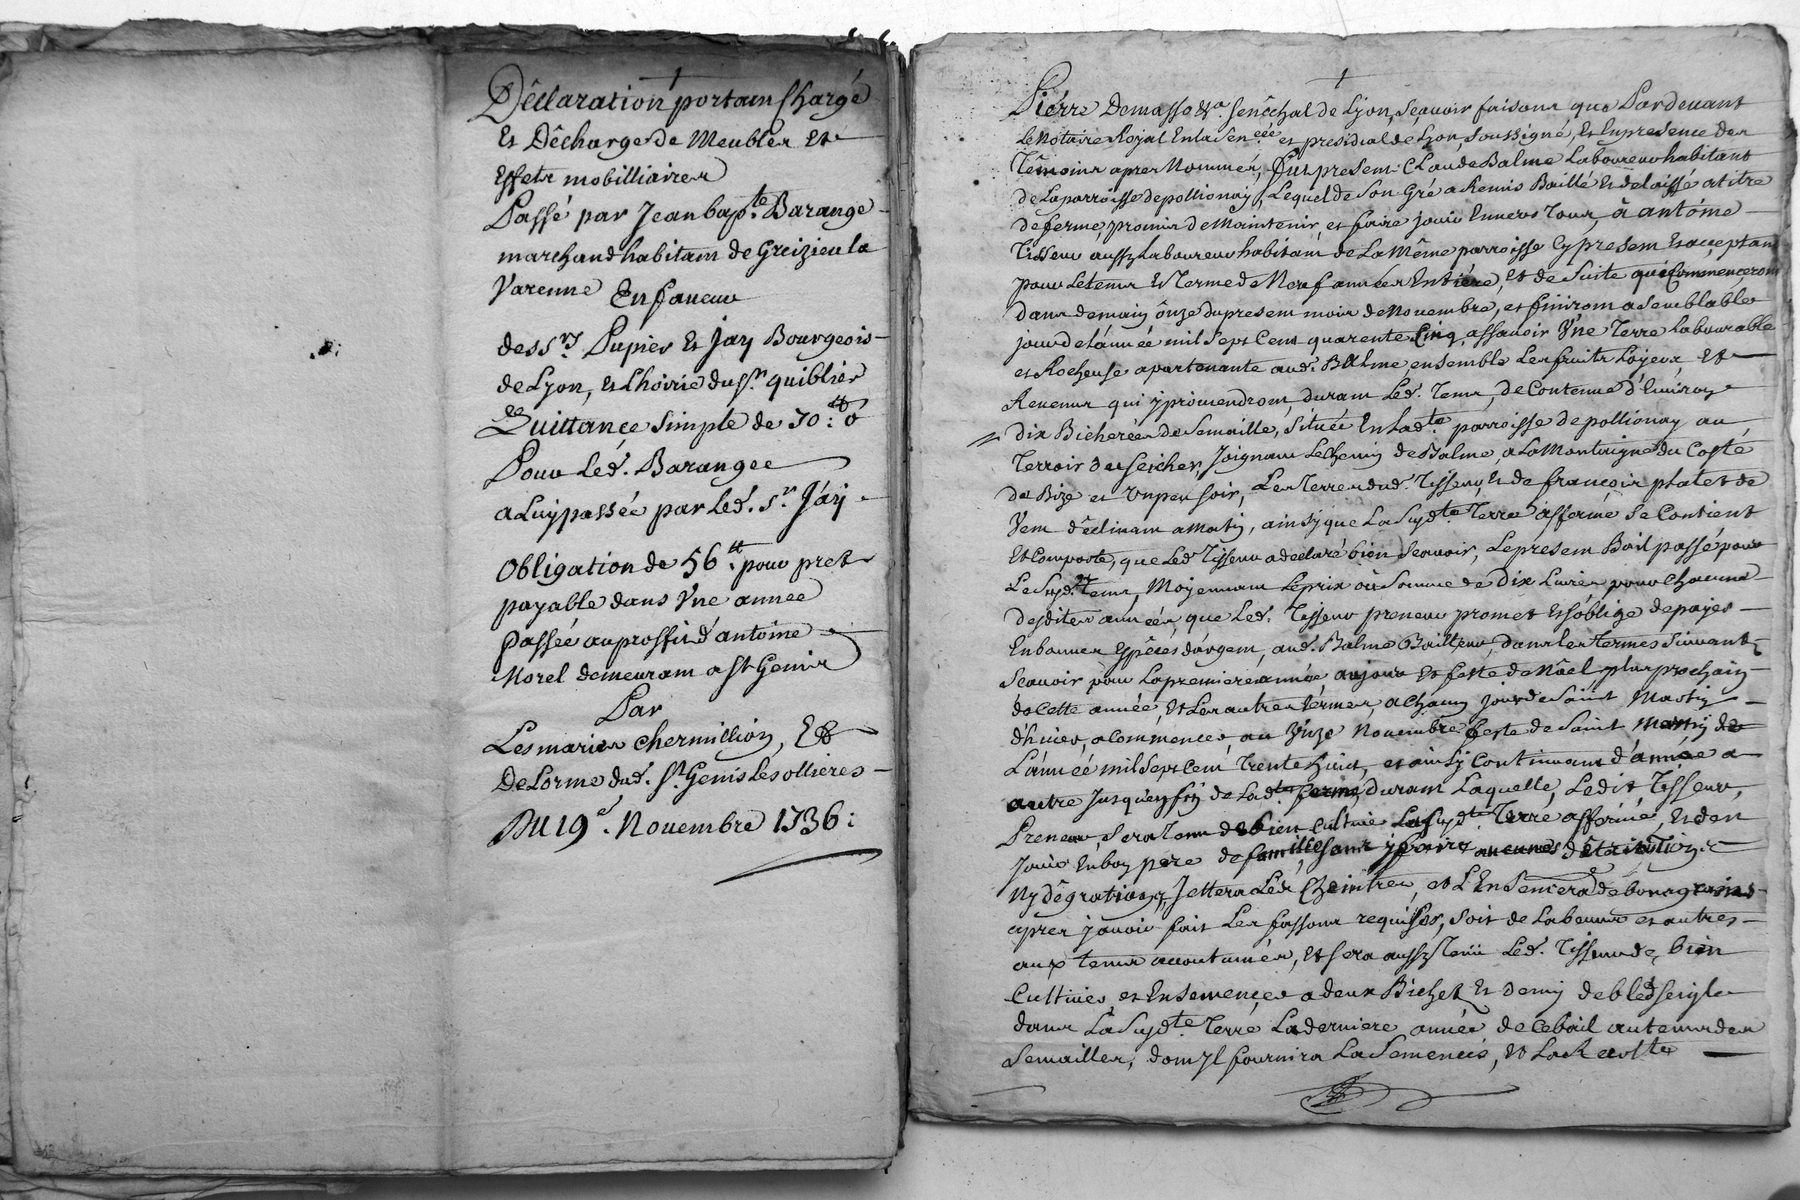 Déclaration portant Chargé
Et Décharge de Meubles Et
Effets mobilliaires
Passé par Jean bapte. Barange
marchand habitant de Greizieu la
Varenne En faveur
des srs. Pupier Et Jay Bourgeois
de Lyon, et Lhoirie du sr. quiblier
Quittance simple de 30: ₶ 0
Pour led. Barange
a Luy passée par Led. Sr. Jay
Obligation de 56₶. pour prest
payable dans Une année
Passée au proffit d'antoine
Morel demeurant a St Genis
Par
Les mariés Chermillion, Et
De Lorme dud. St. Genis Les ollieres
Du 19e. Novembre 1736:
Pierre Demasso &a. senéchal de Lyon, sçavoir faisons que Pardevant
Le Notaire Royal En la sénécée. et presidial de Lyon, soussigné, Et En presence des
Témoins apres Nommés, fut present Claude Balme Laboureur habitant
de La parroisse de pollionay, Lequel de son Gré a Remis Baillé Et delaissé a titre
de ferme, promis de Maintenir et faire jouir Envers Tous, à antôine
Tisseur aussy Laboureur habitant de La Même parroisse Cy present Et acceptant
pour Le tems Et Terme de Neuf années Entiére, Et de suite qui Commenceront
dans demain ônze du present mois de Novembre, et finiront a semblable
jour de Lánnéé mil sept Cent quarente Cinq, assavoir Une Terre Labourable
et Rocheuse apartenante aud. Balme ensemble Les fruits Loyeux Et
Revenus qui y proviendront, durant Led. Tems, de Contenue d'Environ
Dix Bicherées de Semaille, située En Ladte. parroisse de pollionay au
Terroir Joignant Le Chemin de Balme, a La Montaigne du Costé
de Bize et Un peu soir, Les Terres dud. Tisseur, Et de françois platet de
Vent déclinant a Matin, ainsy que La Susdte. Terre affermé se Contient
Et Comporte, que Led. Tisseur a declaré bien sçavoir, Le present Bail passé pour
Le susd. tems, Moyennant Le prix où somme de Dix Livres pour Chacune
desdites années, que Led. Tisseur preneur promet Et s'oblige de payer
En bonnes Espêces d'argent, aud. Balme Bailleur, dans les termes suivant,
sçavoir pour La premiere année au jour Et feste de Nôel plus prochain
de Cette année, Et Les autres termes, a Chacun jour de Saint Martin
d'hiver, a Commencer au Unze Novembre feste de Saint Martin de
L'année mil sept Cent Trente huict, et ainsy Continuant d'année a
autre Jusqu'en fin de Ladte. ferme, durant Laquelle, Ledit Tisseur,
Preneur, sera Tenu de bien Cultiver La Susdte. Terre affermé, Et d'en
Jouir En bon pere de famille sans y faire aucunes détériation
Ny dégration, Jettera Les Cheintres, et L'Ensencera de bons grains
apres y avoir fait Les fassons requises, soit de Labeurs et autres
aux tems accoutumés, Et sera aussy Tenu Led. Tisseur de, bien
Cultiver et Ensemencer a deux Bichet Et Demy de bled seigle
dans La Susdte. Terre La derniere année de Ce bail au tems des
semailles, dont Jl fournira La Semence, Et La Recolte